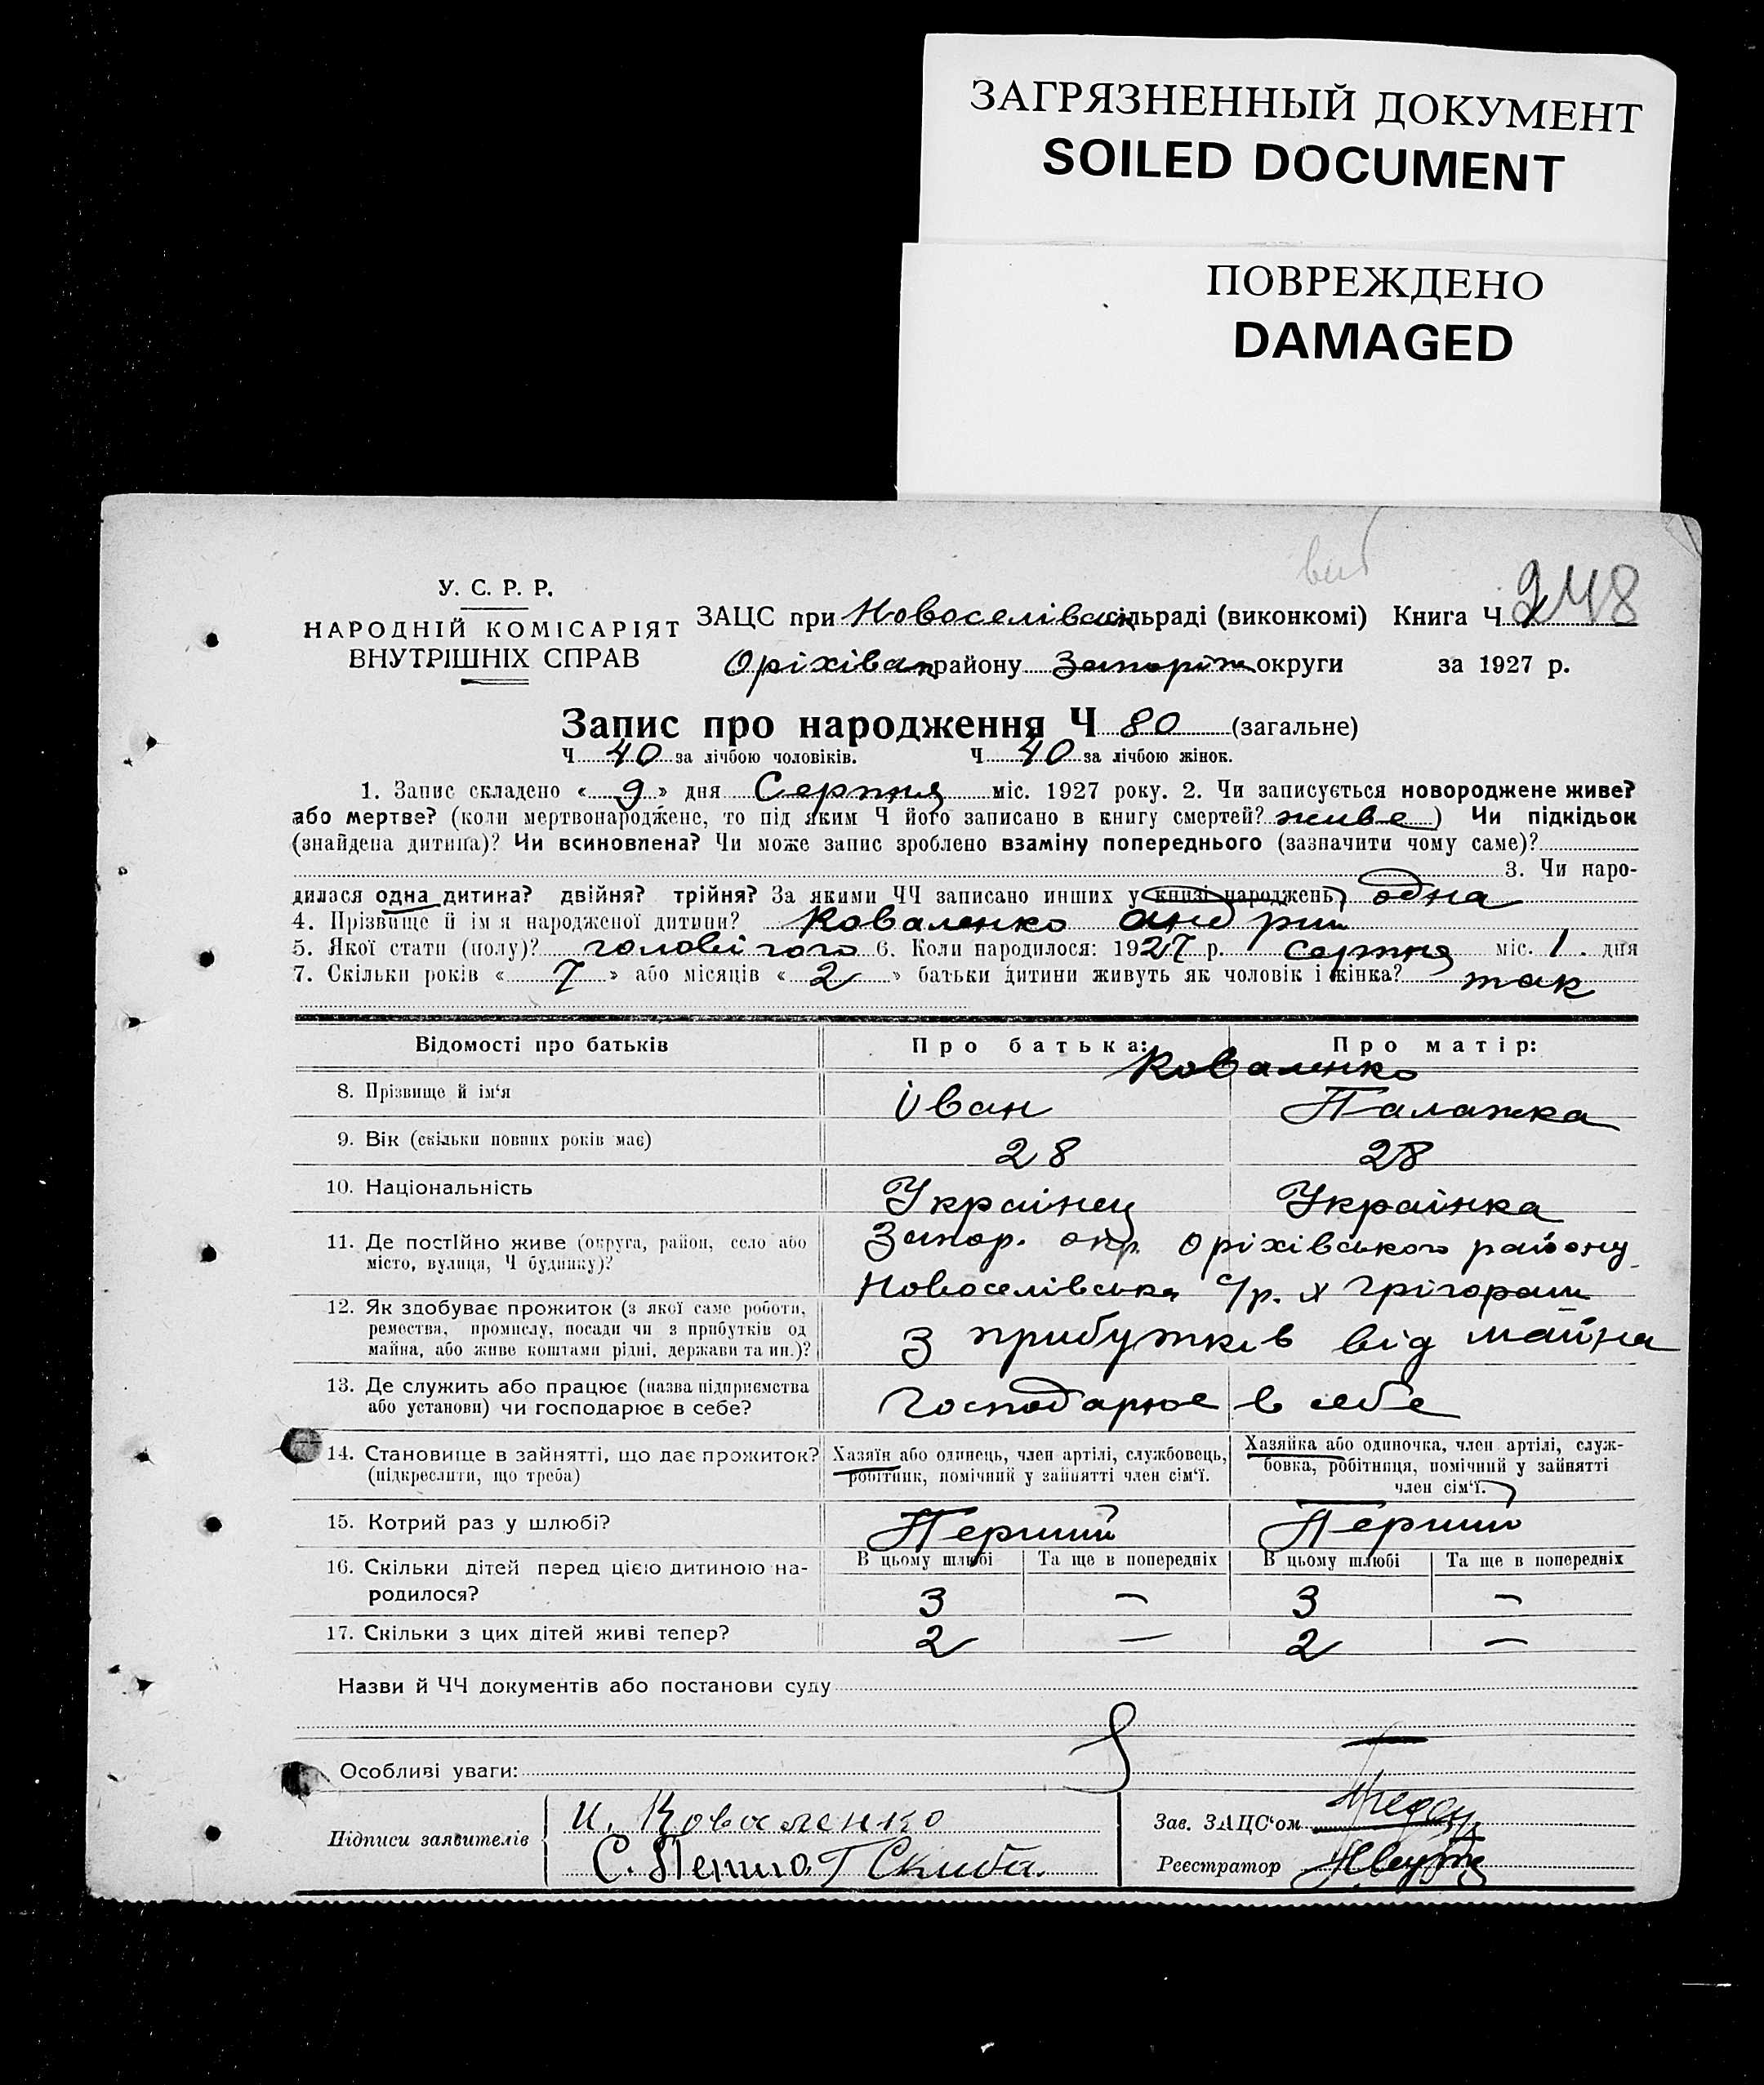 ЗАГРЯЗНЕННЫЙ ДОКУМЕНТ
SOILED DOCUMENT
ПОВРЕЖДЕНО
DAMAGED
248
У. С. Р. Р.
НАРОДНІЙ КОМІСАРІЯТ
ВНУТРІШНІХ СПРАВ
ЗАЦС при Новоселівськ сільраді (виконкомі) Книга Ч
Оріхівськ району Запоріж округи за 1927 р.
Запис про народження Ч 80 (загальне)
Ч 40 за лічбою чоловіків. Ч 40 за лічбою жінок.
1. Запис складено « 9 » дня Серпня міс. 1927 року. 2. Чи записується новороджене живе?
або мертве? (коли мертвонароджене, то під яким Ч його записано в книгу смертей? живе ) Чи підкідьок
(знайдена дитина)? Чи всиновлена? Чи може запис зроблено взаміну попереднього (зазначити чому саме)?
3. Чи наро-
дилася одна дитина? двійня? трійня? За якими ЧЧ записано инших у книзі народжень? одна
4. Прізвище й ім я народженої дитини? Коваленко Андрій
5. Якої стати (полу)? чоловічого 6. Коли народилося: 1927 р. серпня міс. 1. дня
7. Скільки років « 7 » або місяців « 2 » батьки дитини живуть як чоловік і жінка? так
Відомості про батьків Про батька: Про матір:
Коваленко
8. Прізвище й ім'я Іван Палажка
9. Вік (скільки повних років має) 28 28
10. Національність Украінец Украінка
11. Де постійно живе (округа, район, село або Запор. окр. Оріхівського району
місто, вулиця, Ч будинку)? Новоселівська с/р. х Грігораш
12. Як здобуває прожиток (з якої саме роботи,
ремества, промислу, посади чи з прибутків од
майна, або живе коштами рідні, держави та ин.)? З прибутків від майна
13. Де служить або працює (назва підприємства
або установи) чи господарює в себе? Господарює в себе
14. Становище в зайнятті, що дає прожиток? Хазяїн або одинець, член артілі, службовець, Хазяйка або одиночка, член артілі, служ-
(підкреслити, що треба) робітник, помічний у зайнятті член сім'ї. бовка, робітниця, помічний у зайнятті
член сім'ї.
15. Котрий раз у шлюбі? Перший Перший
16. Скільки дітей перед цією дитиною на- В цьому шлюбі Та ще в попередніх В цьому шлюбі Та ще в попередніх
родилося? 3 — 3 —
17. Скільки з цих дітей живі тепер? 2 — 2 —
Назви й ЧЧ документів або постанови суду
Особливі уваги:
Підписи заявителів И. Коваленко Зав. ЗАЦС'ом
С. Г Скиба. Реєстратор